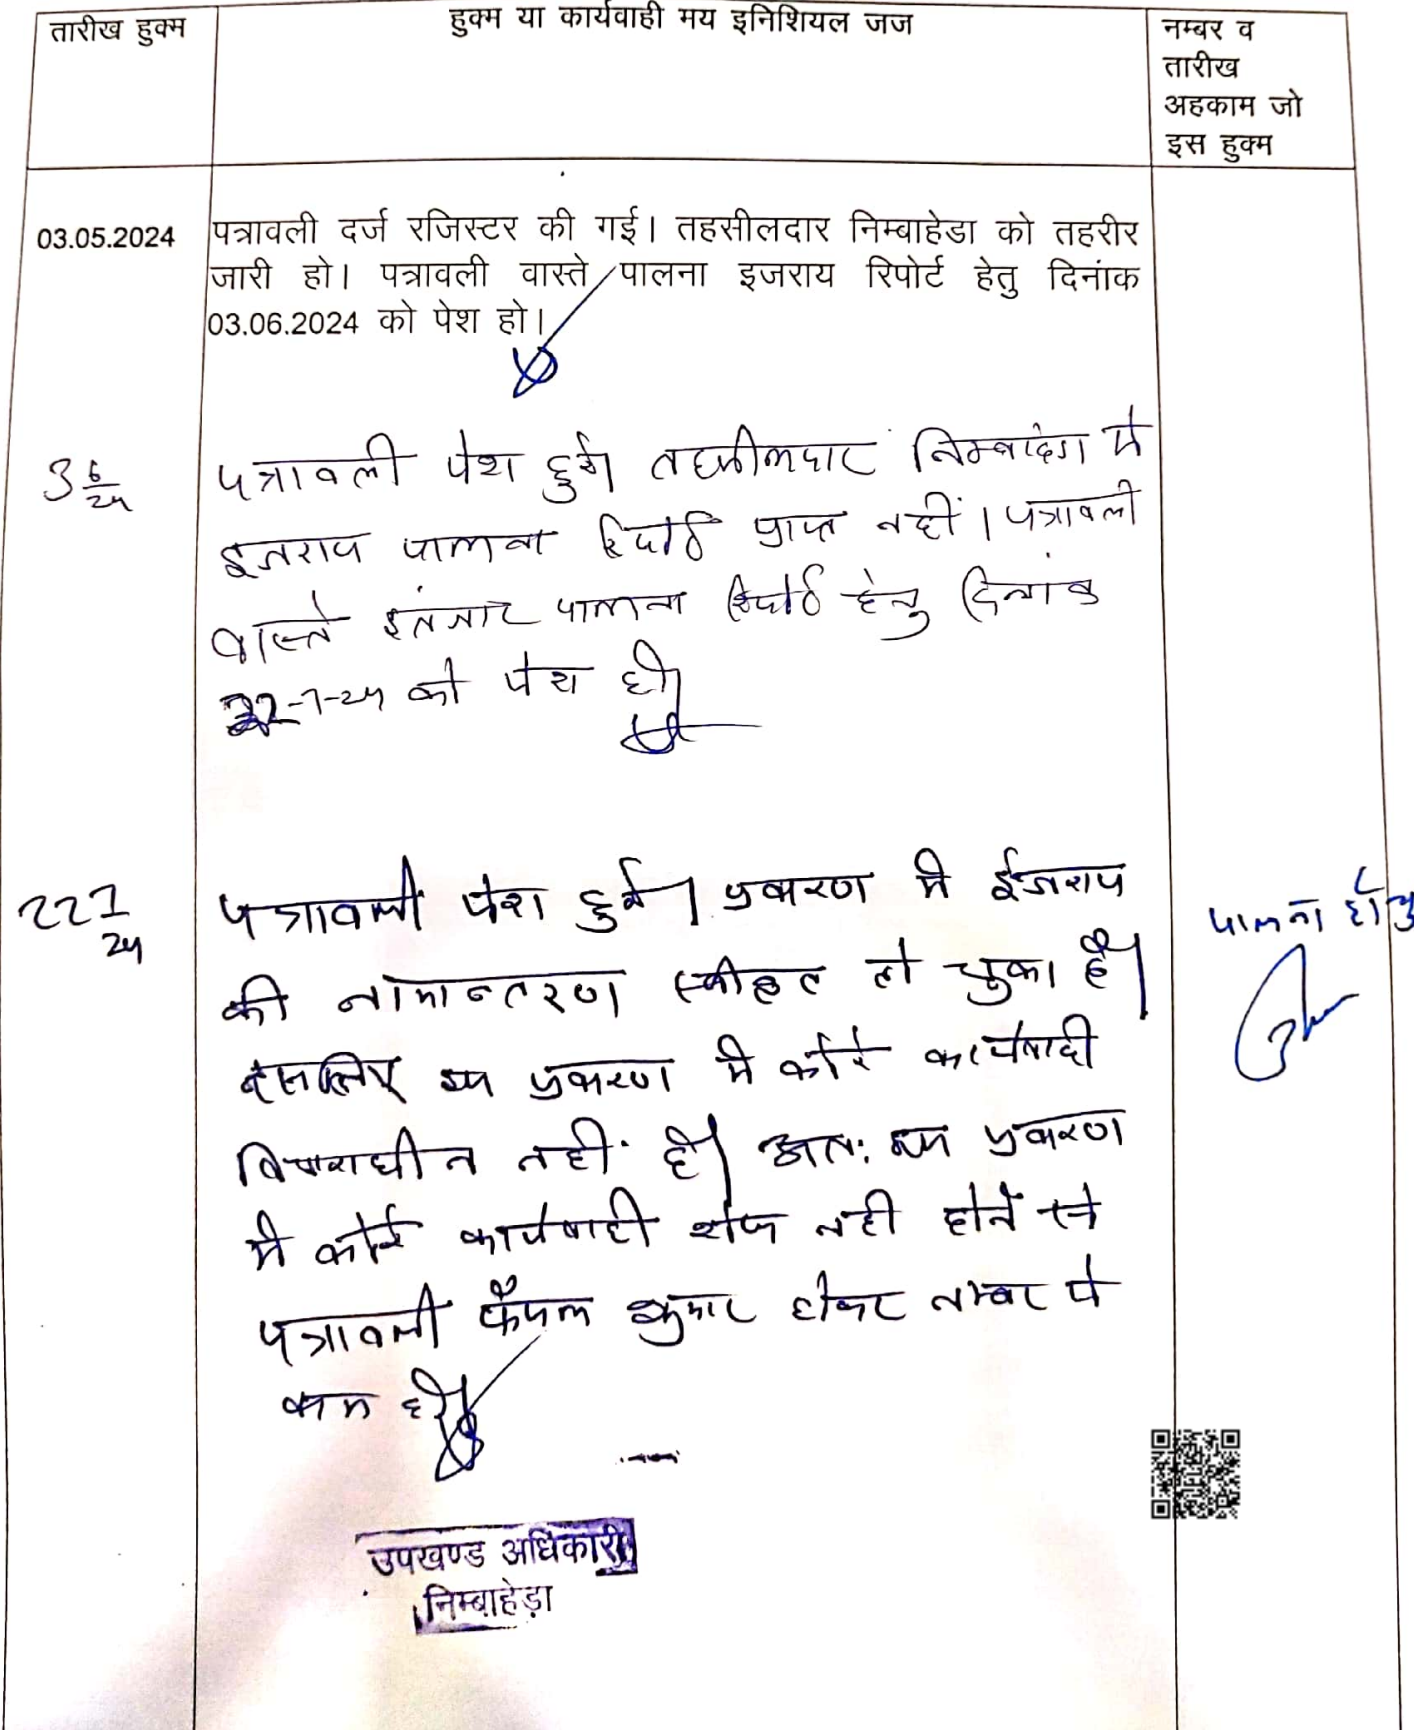 तारीख हुक्म
हुक्म या कार्यवाही मय इनिशियल जज
नम्बर व
तारीख
अहकाम जो
इस हुक्म
03.05.2024
पत्रावली दर्ज रजिस्टर की गई। तहसीलदार निम्बाहेडा को तहरीर
जारी हो। पत्रावली वास्ते पालना इजराय रिपोर्ट हेतु दिनांक
03.06.2024 को पेश हो।
3 6/24
पत्रावली पेश हुई। तहसीलदार निम्बाहेडा से
इजराय पालना रिपोर्ट प्राप्त नहीं। पत्रावली
वास्ते इंतजार पालना रिपोर्ट हेतु दिनांक
22-7-24 को पेश हो।
22 7/24
पत्रावली पेश हुई। प्रकरण में ईजराय
की नामान्तरण स्वीकृत हो चुका है।
इसलिए इस प्रकरण में कोई कार्यवाही
विचाराधीन नहीं है। अतः इस प्रकरण
में कोई कार्यवाही शेष नही होने से
पत्रावली फैसल शुमार होकर नम्बर से
कम हो।
पालना हेतु
उपखण्ड अधिकारी
निम्बाहेड़ा